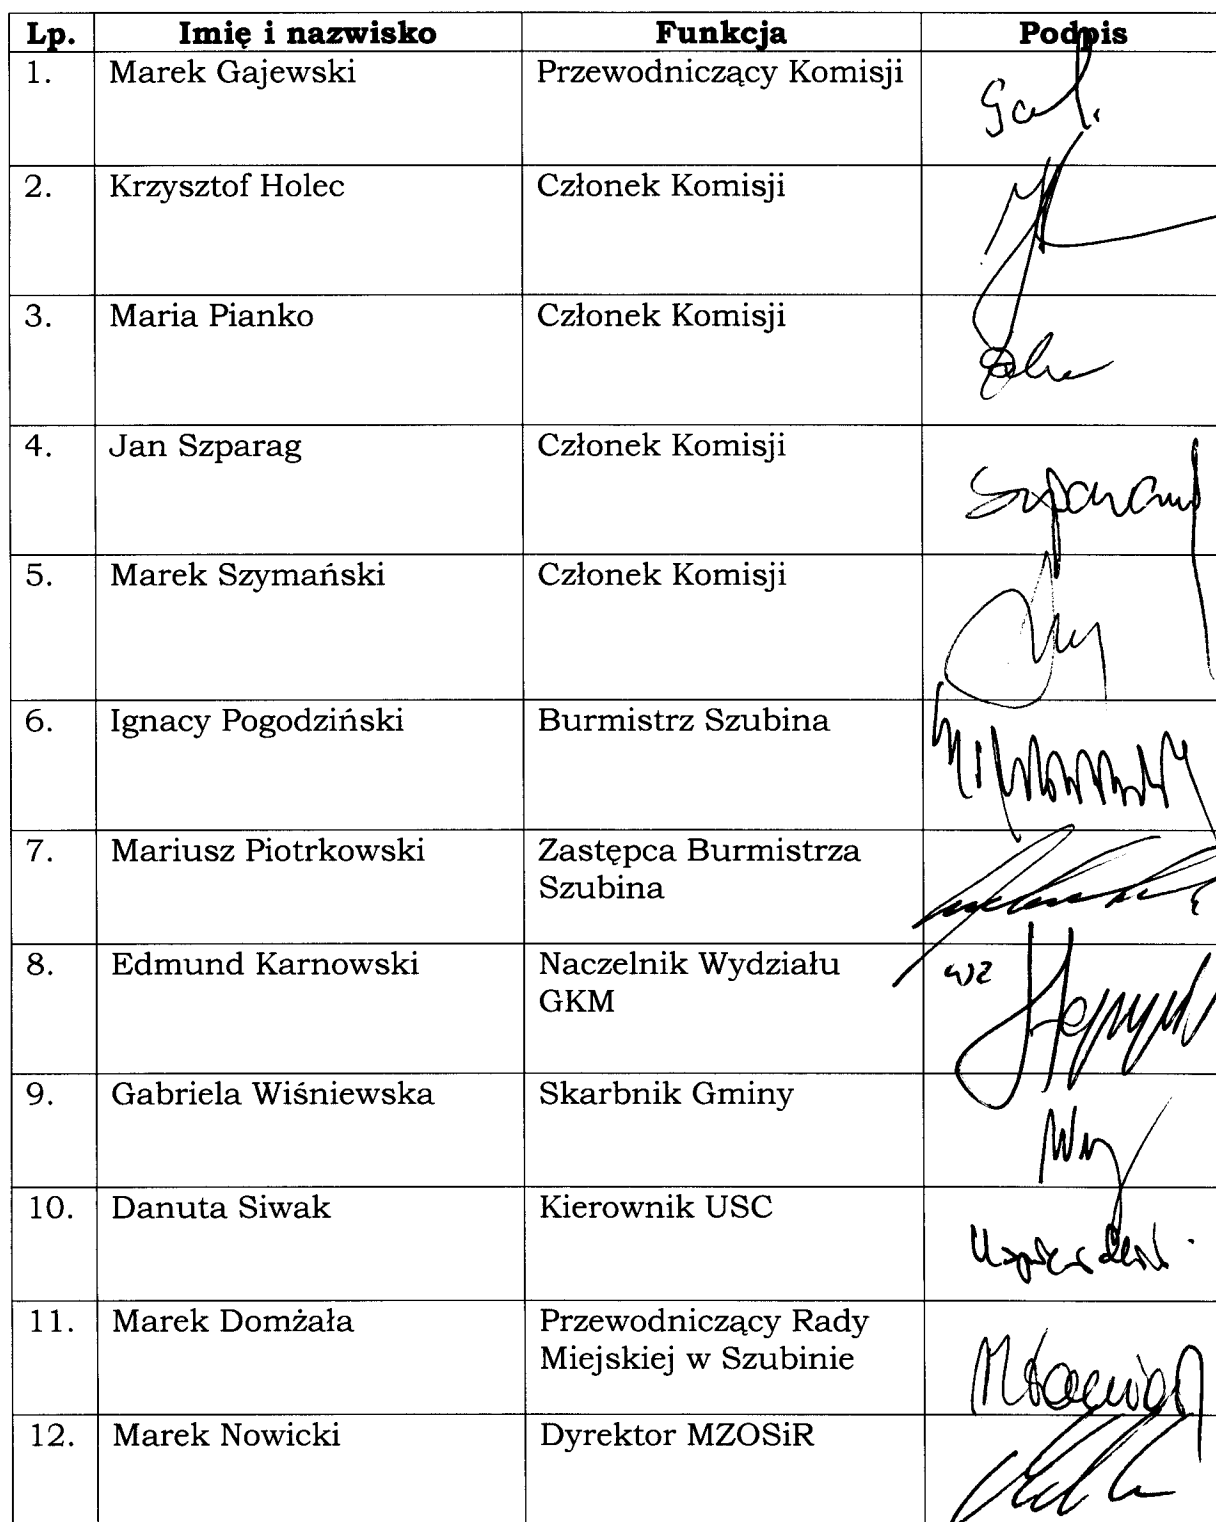 Lp. Imię i nazwisko Funkcja Podpis
1. Marek Gajewski Przewodniczący Komisji
2. Krzysztof Holec Członek Komisji
3. Maria Pianko Członek Komisji
4. Jan Szparag Członek Komisji
5. Marek Szymański Członek Komisji
6. Ignacy Pogodziński Burmistrz Szubina
7. Mariusz Piotrkowski Zastępca Burmistrza
Szubina
8. Edmund Karnowski Naczelnik Wydziału wz
GKM
9. Gabriela Wiśniewska Skarbnik Gminy
10. Danuta Siwak Kierownik USC
11. Marek Domżała Przewodniczący Rady
Miejskiej w Szubinie
12. Marek Nowicki Dyrektor MZOSiR